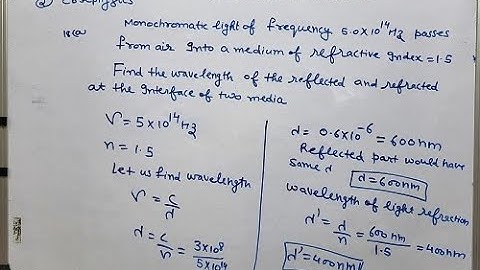 18(a) Monochromatic light of frequency 5.0×10¹⁴Hz passes
from air Into a medium of refractive Index = 1.5
Find the wavelength of the reflected and refracted
at the Interface of two media
ν = 5×10¹⁴Hz
n = 1.5
Let us find wavelength
ν = c/λ
λ = c/ν = 3×10⁸/5×10¹⁴
λ = 0.6×10⁻⁶ = 600nm
Reflected part would have
same λ λ = 600nm
wavelength of light refraction
λ' = λ/n = 600nm/1.5 = 400nm
λ' = 400nm